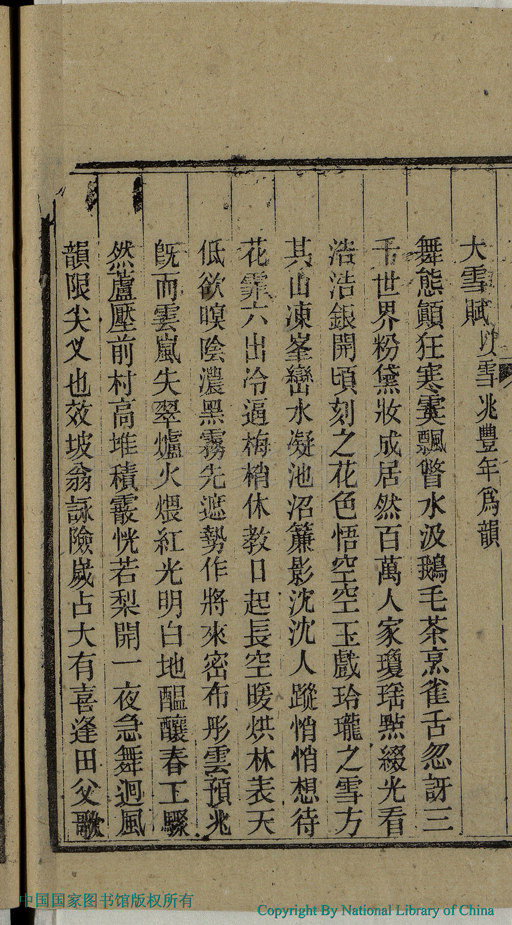 大雪賦以雪兆豐年爲韻
舞態顚狂寒雲飄瞥水汲鵝毛茶烹雀舌忽訝三
千世界粉黛妝成居然百萬人家瓊瑤㸃綴光看
浩浩銀開頃刻之花色悟空空玉戲玲瓏之雪方
其山凍峯巒水凝池沼簾影沈沈人蹤悄悄想待
花霏六出冷逼梅梢休教日起長空暖烘林表天
低欲暝陰濃黑霧先遮勢作將來密布彤雲預兆
旣而雲嵐失翠爐火煨紅光明白地醖釀春工驟
然蘆壓前村高堆積霰恍若梨開一夜急舞迴風
韻限尖叉也效坡翁詠險歲占大有喜逢田父歌
中国国家图书馆版权所有
Copyright By National Library of China